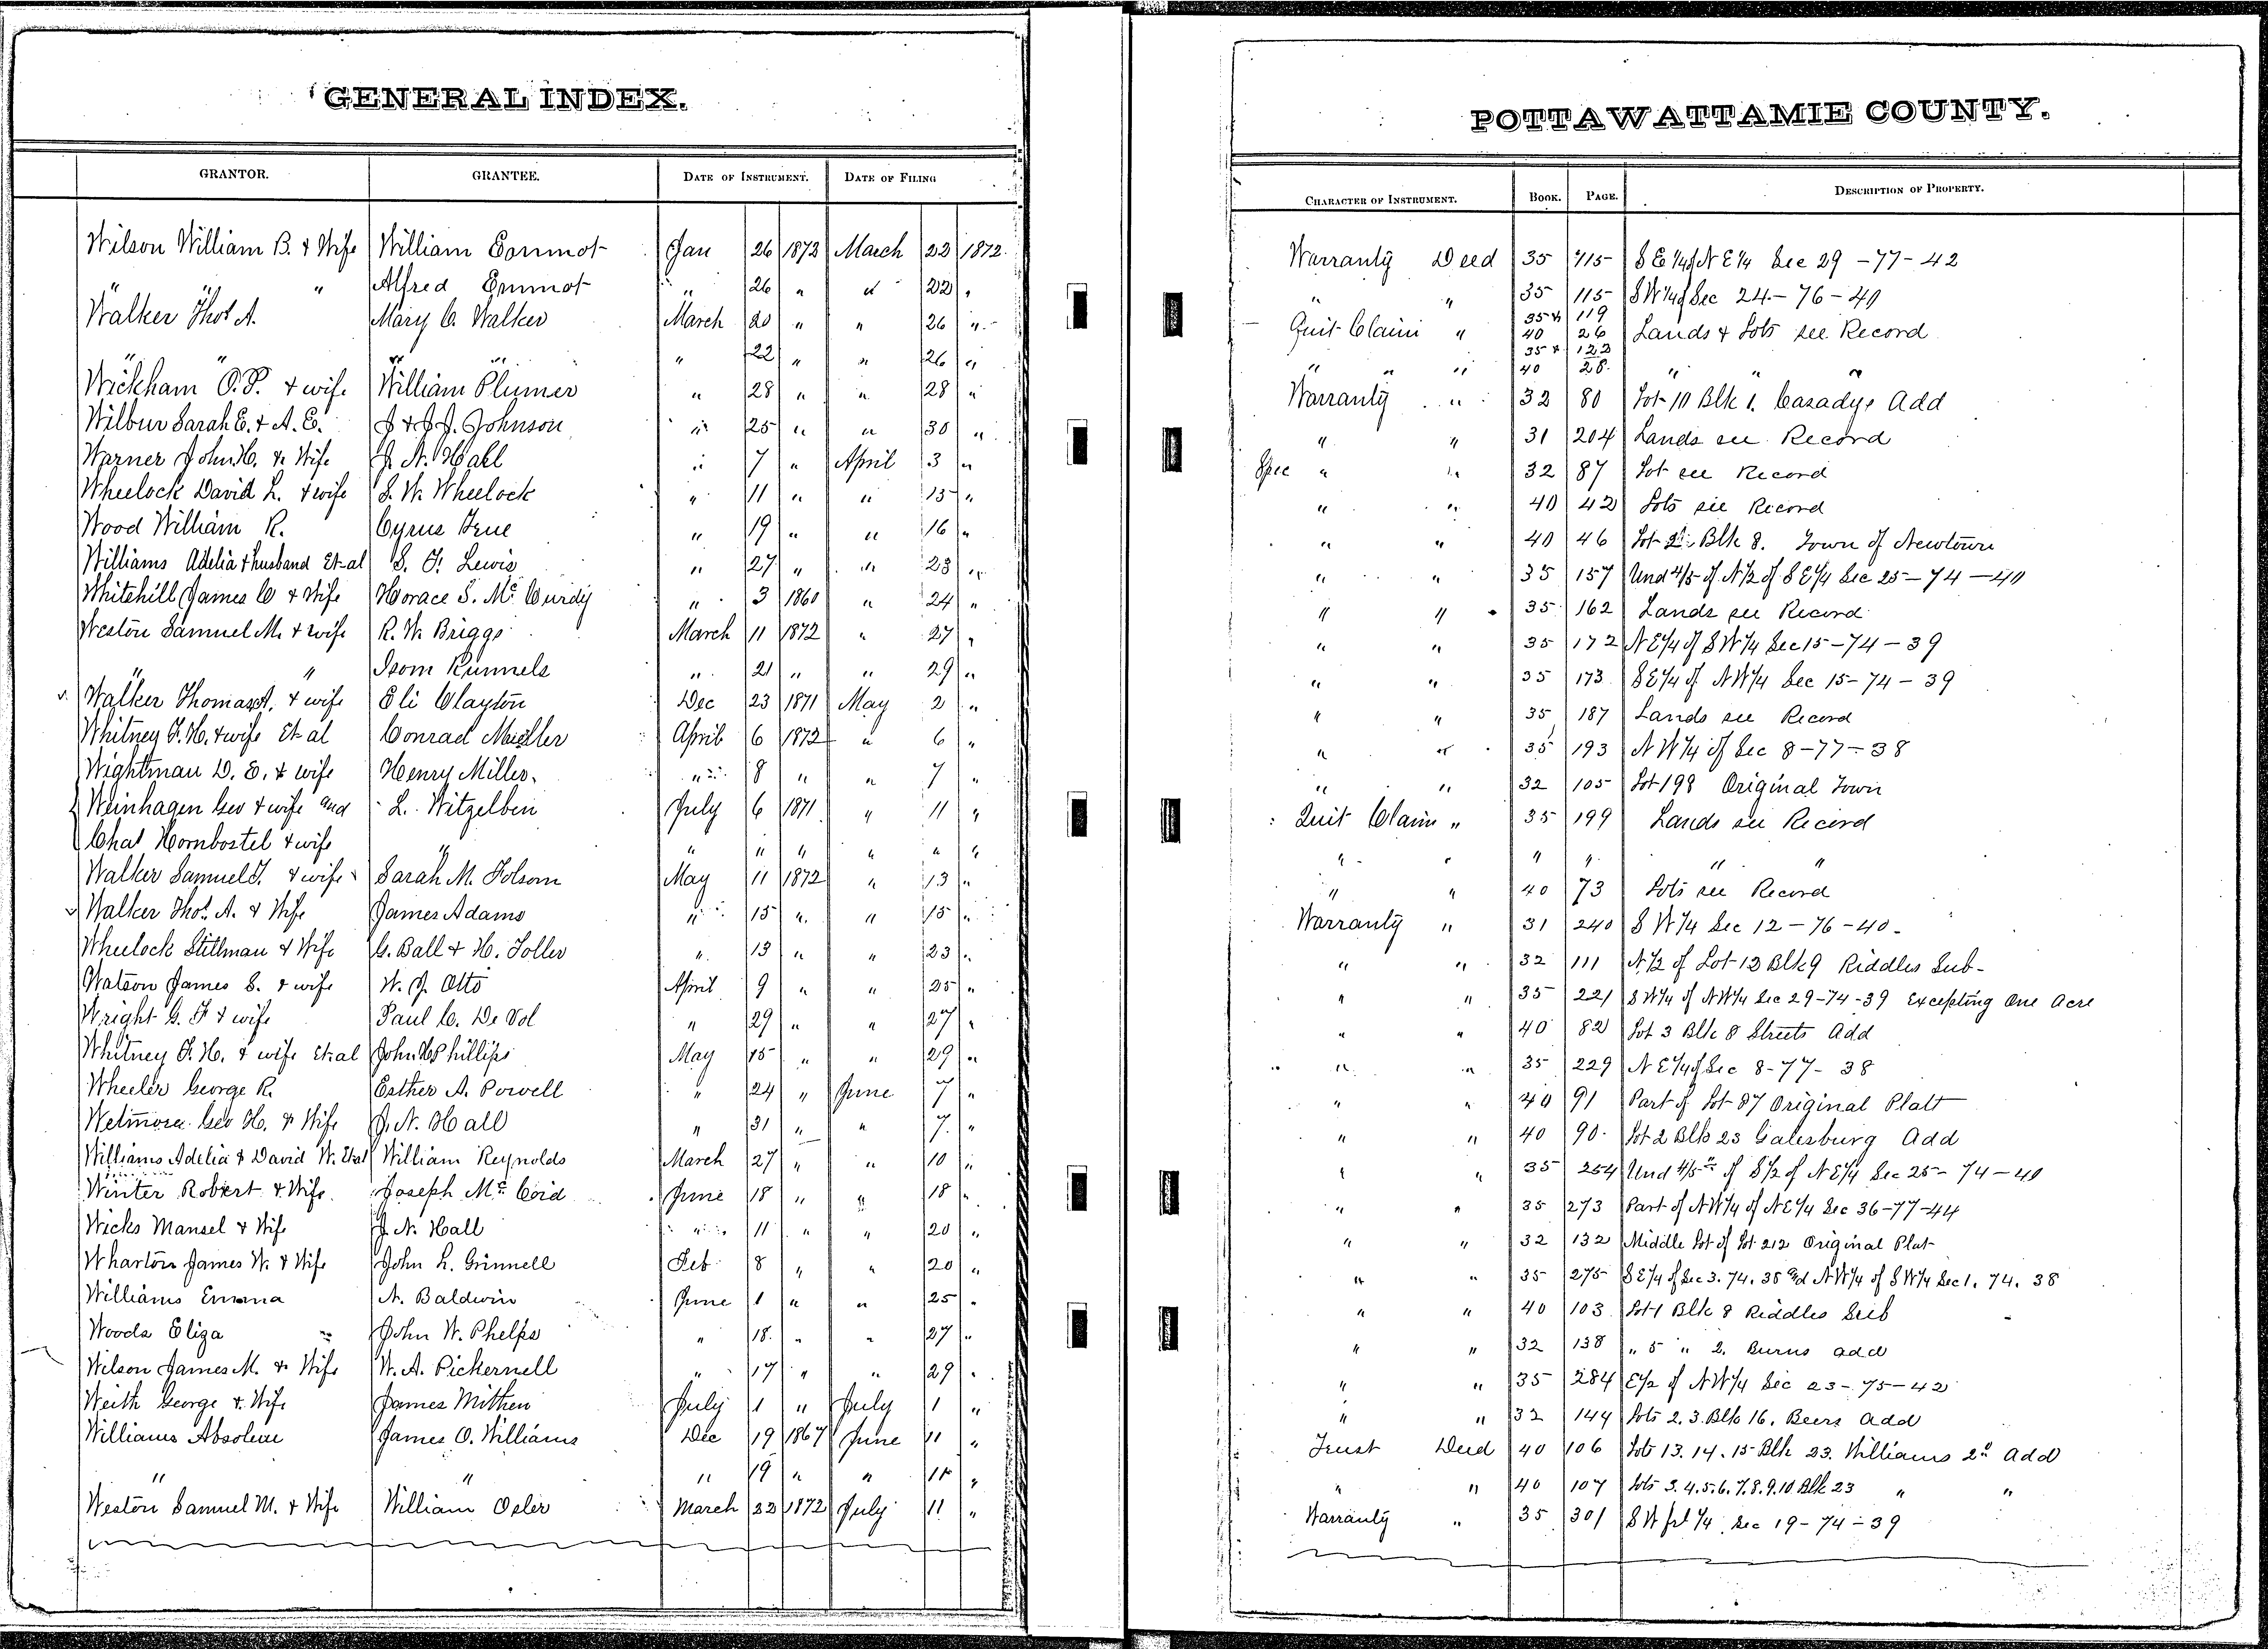 GENERAL INDEX.
GRANTOR. GRANTEE. DATE OF INSTRUMENT. DATE OF FILING
Wilson William B. & Wife William Emmot Jan 26 1872 March 22 1872.
" " " Alfred Emmot " 26 " " 22 "
Walker Thos A. Mary C. Walker March 20 " " 26 "
" " " " " 22 " " 26 "
Wickham O.P. & wife William Plumer " 28 " " 28 "
Wilbur Sarah E. & A. E. J & J.J. Johnson " 25 " " 30 "
Warner John H. & Wife J. N. Hall " 7 " April 3 "
Wheelock David L. & wife S. W. Wheelock " 11 " " 15 "
Wood William R. Cyrus True " 19 " " 16 "
Williams Adelia & husband Et al S. F. Lewis " 27 " " 23 "
Whitehill James C & Wife Horace S. Mc Curdy " 3 1860 " 24 "
Weston Samuel M. & wife R. W. Briggs March 11 1872 " 27 "
" " Isom Runnels " 21 " " 29 "
Walker Thomas A. & wife Eli Clayton Dec 23 1871 May 2 "
Whitney F. H. & wife Et al Conrad Mueller April 6 1872 " 6 "
Wightman D. E. & wife Henry Miller. " 8 " " 7 "
Weinhagen Geo & wife and L. Witzelben July 6 1871 " 11 "
Chas Hornbostel & wife " " " " " " "
Walker Samuel T. & wife Sarah M. Folsom May 11 1872 " 13 "
Walker Thos. A. & Wife James Adams " 15 " " 15 "
Wheelock Stillman & Wife G. Ball & H. Toller " 13 " " 23 "
Watson James S. & wife W. J. Otto April 9 " " 25 "
Wright G. F & wife Paul C. De Vol " 29 " " 27 "
Whitney F. H. & wife Et al John H Phillips May 15 " " 29 "
Wheeler George R. Esther A. Powell " 24 " June 7 "
Wetmore Geo H. & Wife J. N. Hall " 31 " " 7 "
Williams Adelia & David W. Et al William Reynolds March 27 " " 10 "
Winter Robert & Wife Joseph Mc Coid June 18 " " 18 "
Wicks Mansel & Wife J. N. Hall " 11 " " 20 "
Wharton James W. & Wife John L. Grinnell Feb 8 " " 20 "
Williams Emma N. Baldwin June 1 " " 25 "
Woods Eliza John W. Phelps " 18 " " 27 "
Wilson James M. & Wife W. A. Pickernell " 17 " " 29 "
Weith George & Wife James Mithen July 1 " July 1 "
Williams Absolem James O. Williams Dec 19 1867 June 11 "
" " " 19 " " 11 "
Weston Samuel M. & Wife William Osler March 22 1872 July 11 "
POTTAWATTAMIE COUNTY.
CHARACTER OF INSTRUMENT. BOOK. PAGE. DESCRIPTION OF PROPERTY.
Warranty Deed 35 115 S E 1/4 of N E 1/4 Sec 29 - 77 - 42
" " 35 115 S W 1/4 of Sec 24 - 76 - 40
35 & 119
Quit Claim " 40 26 Lands & Lots see Record
35 & 122
" " " 40 28 " " "
Warranty " 32 80 Lot 10 Blk 1. Casadys Add
" " 31 204 Lands see Record
Spec " " 32 87 Lot see Record
" " 40 42 Lots see Record
" " 40 46 Lot 2 Blk 8. Town of Newtown
" " 35 157 Und 4/5 of N 1/2 of S E 1/4 Sec 25 - 74 - 40
" " 35 162 Lands see Record
" " 35 172 N E 1/4 of S W 1/4 Sec 15 - 74 - 39
" " 35 173 S E 1/4 of N W 1/4 Sec 15 - 74 - 39
" " 35 187 Lands see Record
" " 35 193 N W 1/4 of Sec 8 - 77 - 38
" " 32 105 Lot 198 Original Town
Quit Claim " 35 199 Lands see Record
" " " " " "
" " 40 73 Lots see Record
Warranty " 31 240 S W 1/4 Sec 12 - 76 - 40.
" " 32 111 N 1/2 of Lot 12 Blk 9 Riddles Sub-
" " 35 221 S W 1/4 of N W 1/4 Sec 29 - 74 - 39 Excepting One Acre
" " 40 82 Lot 3 Blk 8 Streets Add
" " 35 229 N E 1/4 of Sec 8 - 77 - 38
" " 40 91 Part of Lot 87 Original Platt
" " 40 90 Lot 2 Blk 23 Galesburg Add
" " 35 254 Und 4/5 of S 1/2 of N E 1/4 Sec 25 - 74 - 40
" " 35 273 Part of N W 1/4 of N E 1/4 Sec 36 - 77 - 44
" " 32 132 Middle Lot of Lot 212 Original Plat
" " 35 275 S E 1/4 of Sec 3. 74. 38 and N W 1/4 of S W 1/4 Sec 1. 74. 38
" " 40 103 Lot 1 Blk 8 Riddles Sub
" " 32 138 " 5 " 2. Burns add
" " 35 284 E 1/2 of N W 1/4 Sec 23 - 75 - 42
" " 32 144 Lots 2. 3. Blk 16. Beers add
Trust Deed 40 106 Lots 13. 14. 15 Blk 23. Williams 2d Add
" " 40 107 Lots 3.4.5.6.7.8.9.10 Blk 23 " "
Warranty " 35 301 S W frl 1/4 Sec 19 - 74 - 39